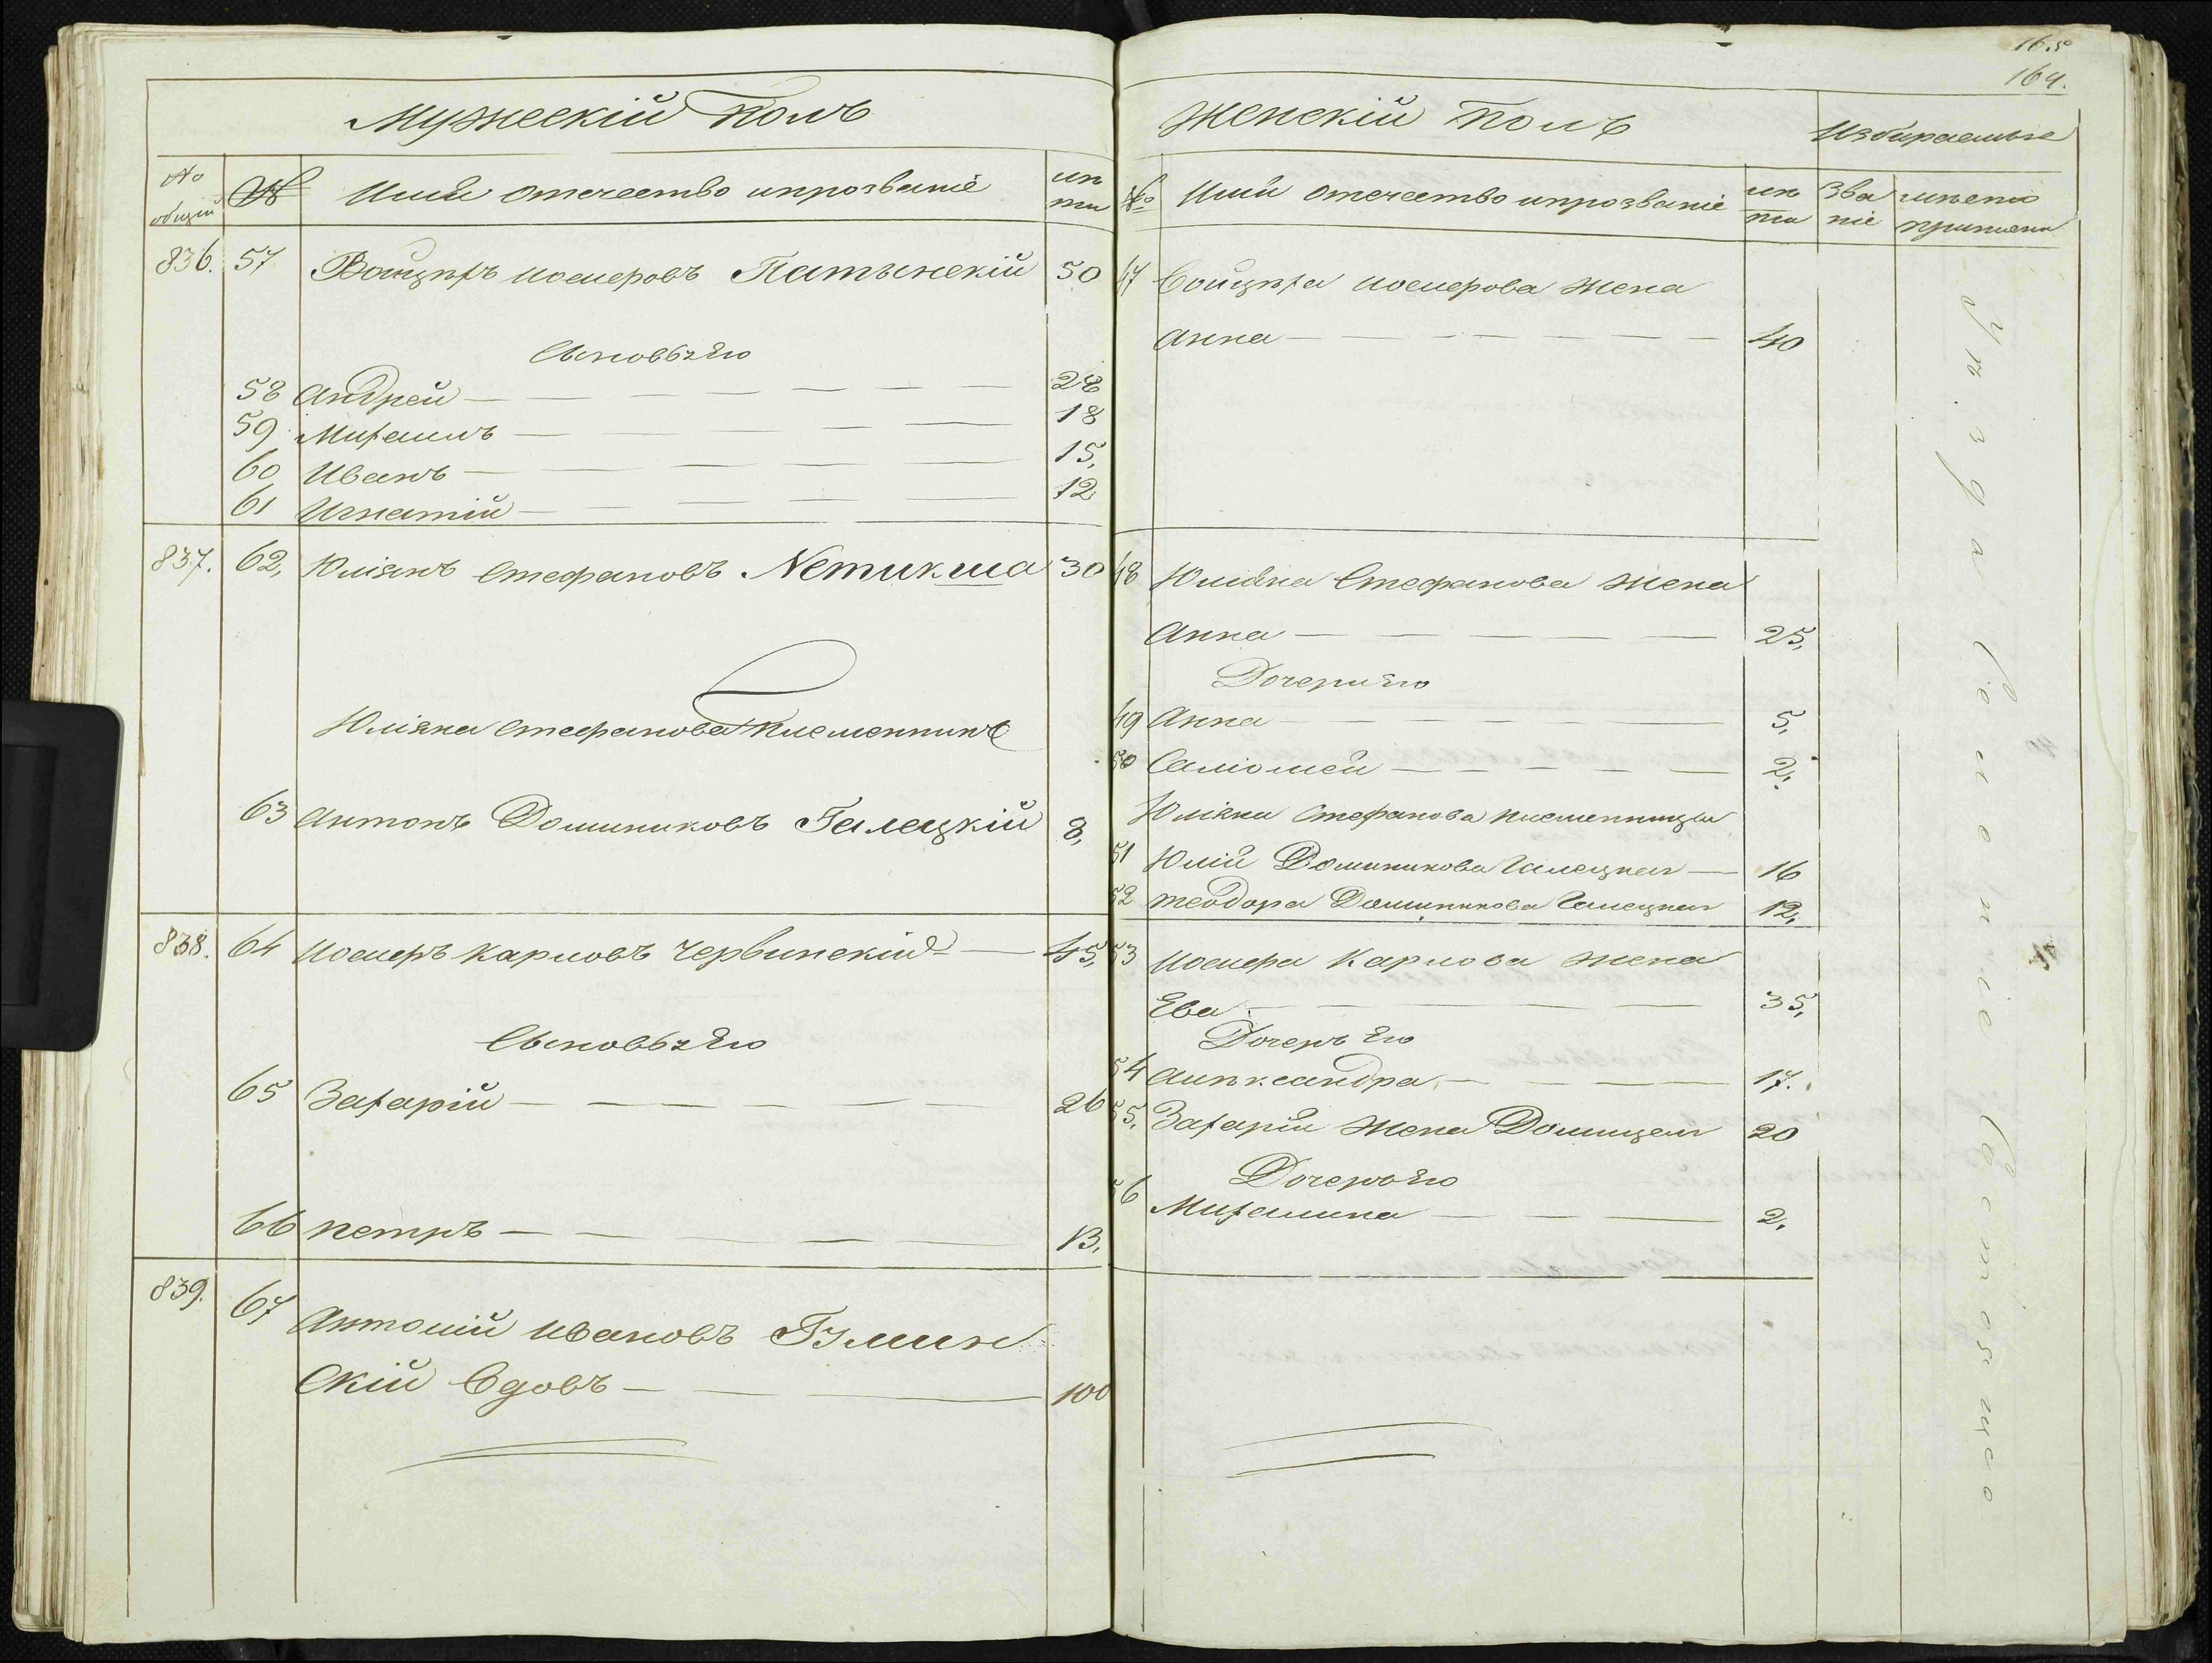 Мужескій Полъ
№ общій № Имя отечество ипрозваніе лѣта
836. 57 Войцѣхъ иосиѳовъ Патынскій 50
Сыновья Его
58 Андрей 28
59 Михаилъ 18
60 Иванъ 15,
61 Игнатій 12
837. 62, Юліянъ Стефановъ Петикша 30
Юліяна Стефанова Племенникъ
63 Антонъ Доминиковъ Галецкій 8,
838. 64 иосифъ Карповъ Червинскій 45,
Сыновья Его
65 Захарій 26
66 петръ 13,
839. 67 Антоній ивановъ
Скій Вдовъ 100
165
164.
Женскій Полъ Избираемые
№ Имя отечество ипрозваніе лѣта Званіе
47 Войцѣха иосифова жена
Анна 40
48 Юліяна Стефанова жена
Анна 25,
Дочери Его
49 Анна 5,
50 Саліомея 2,
Юліяна Стефанова племенницы
51 Юлія Доминикова Галецкая 16
52 теодора Доминикова Галецкая 12,
53 иосифа Карпова жена
Ева 35,
Дочерь Его
54 Алѣксандра 17.
55, Захарія жена Домицеля 20
Дочерь Его
56 Михалина 2,